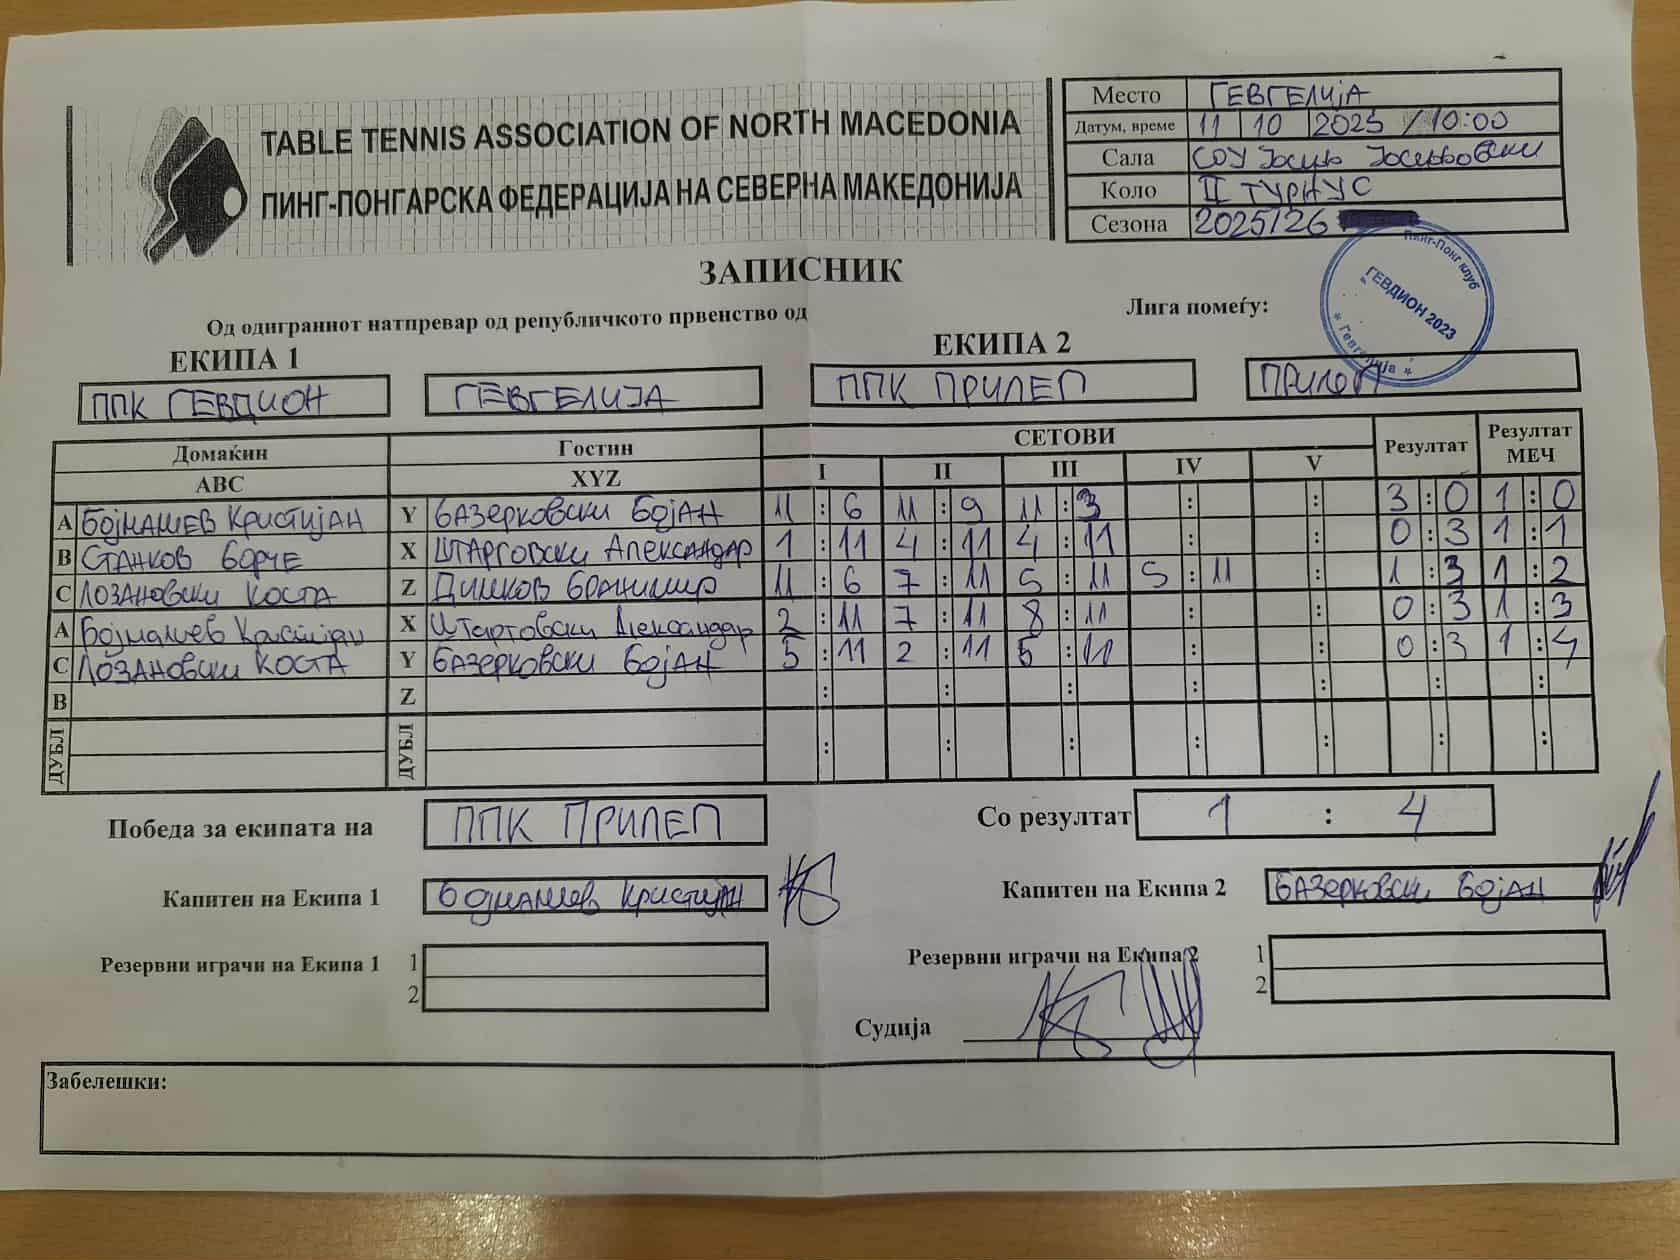 TABLE TENNIS ASSOCIATION OF NORTH MACEDONIA
ПИНГ-ПОНГАРСКА ФЕДЕРАЦИЈА НА СЕВЕРНА МАКЕДОНИЈА
Место ГЕВГЕЛИЈА
Датум, време 11 10 2025 / 10:00
Сала СОУ Јосиф Јосифовски
Коло II ТУРНУС
Сезона 2025/26
Пинг-Понг клуб
ГЕВДИОН 2023
* Гевгелија *
ЗАПИСНИК
Од одиграниот натпревар од републичкото првенство од Лига помеѓу:
ЕКИПА 1 ЕКИПА 2
ППК ГЕВДИОН ГЕВГЕЛИЈА ППК ПРИЛЕП ПРИЛЕП
Домаќин Гостин СЕТОВИ Резултат Резултат МЕЧ
ABC XYZ I II III IV V
A БОЈНАШЕВ КРИСТИЈАН Y БАЗЕРКОВСКИ БОЈАН 11 : 6 11 : 9 11 : 3 : : 3 : 0 1 : 0
B СТАНКОВ БОРЧЕ X ШТАРГОВСКИ АЛЕКСАНДАР 1 : 11 4 : 11 4 : 11 : : 0 : 3 1 : 1
C ЛОЗАНОВСКИ КОСТА Z ДИШКОВ БРАНИМИР 11 : 6 7 : 11 5 : 11 5 : 11 : 1 : 3 1 : 2
A БОЈНАШЕВ КРИСТИЈАН X ШТАРТОВСКИ АЛЕКСАНДАР 2 : 11 7 : 11 8 : 11 : : 0 : 3 1 : 3
C ЛОЗАНОВСКИ КОСТА Y БАЗЕРКОВСКИ БОЈАН 5 : 11 2 : 11 5 : 11 : : 0 : 3 1 : 4
B Z : : : : : : :
ДУБЛ ДУБЛ : : : : : : :
Победа за екипата на ППК ПРИЛЕП Со резултат 1 : 4
Капитен на Екипа 1 БОЈНАШЕВ КРИСТИЈАН Капитен на Екипа 2 БАЗЕРКОВСКИ БОЈАН
Резервни играчи на Екипа 1 1 Резервни играчи на Екипа 2 1
2 2
Судија
Забелешки: